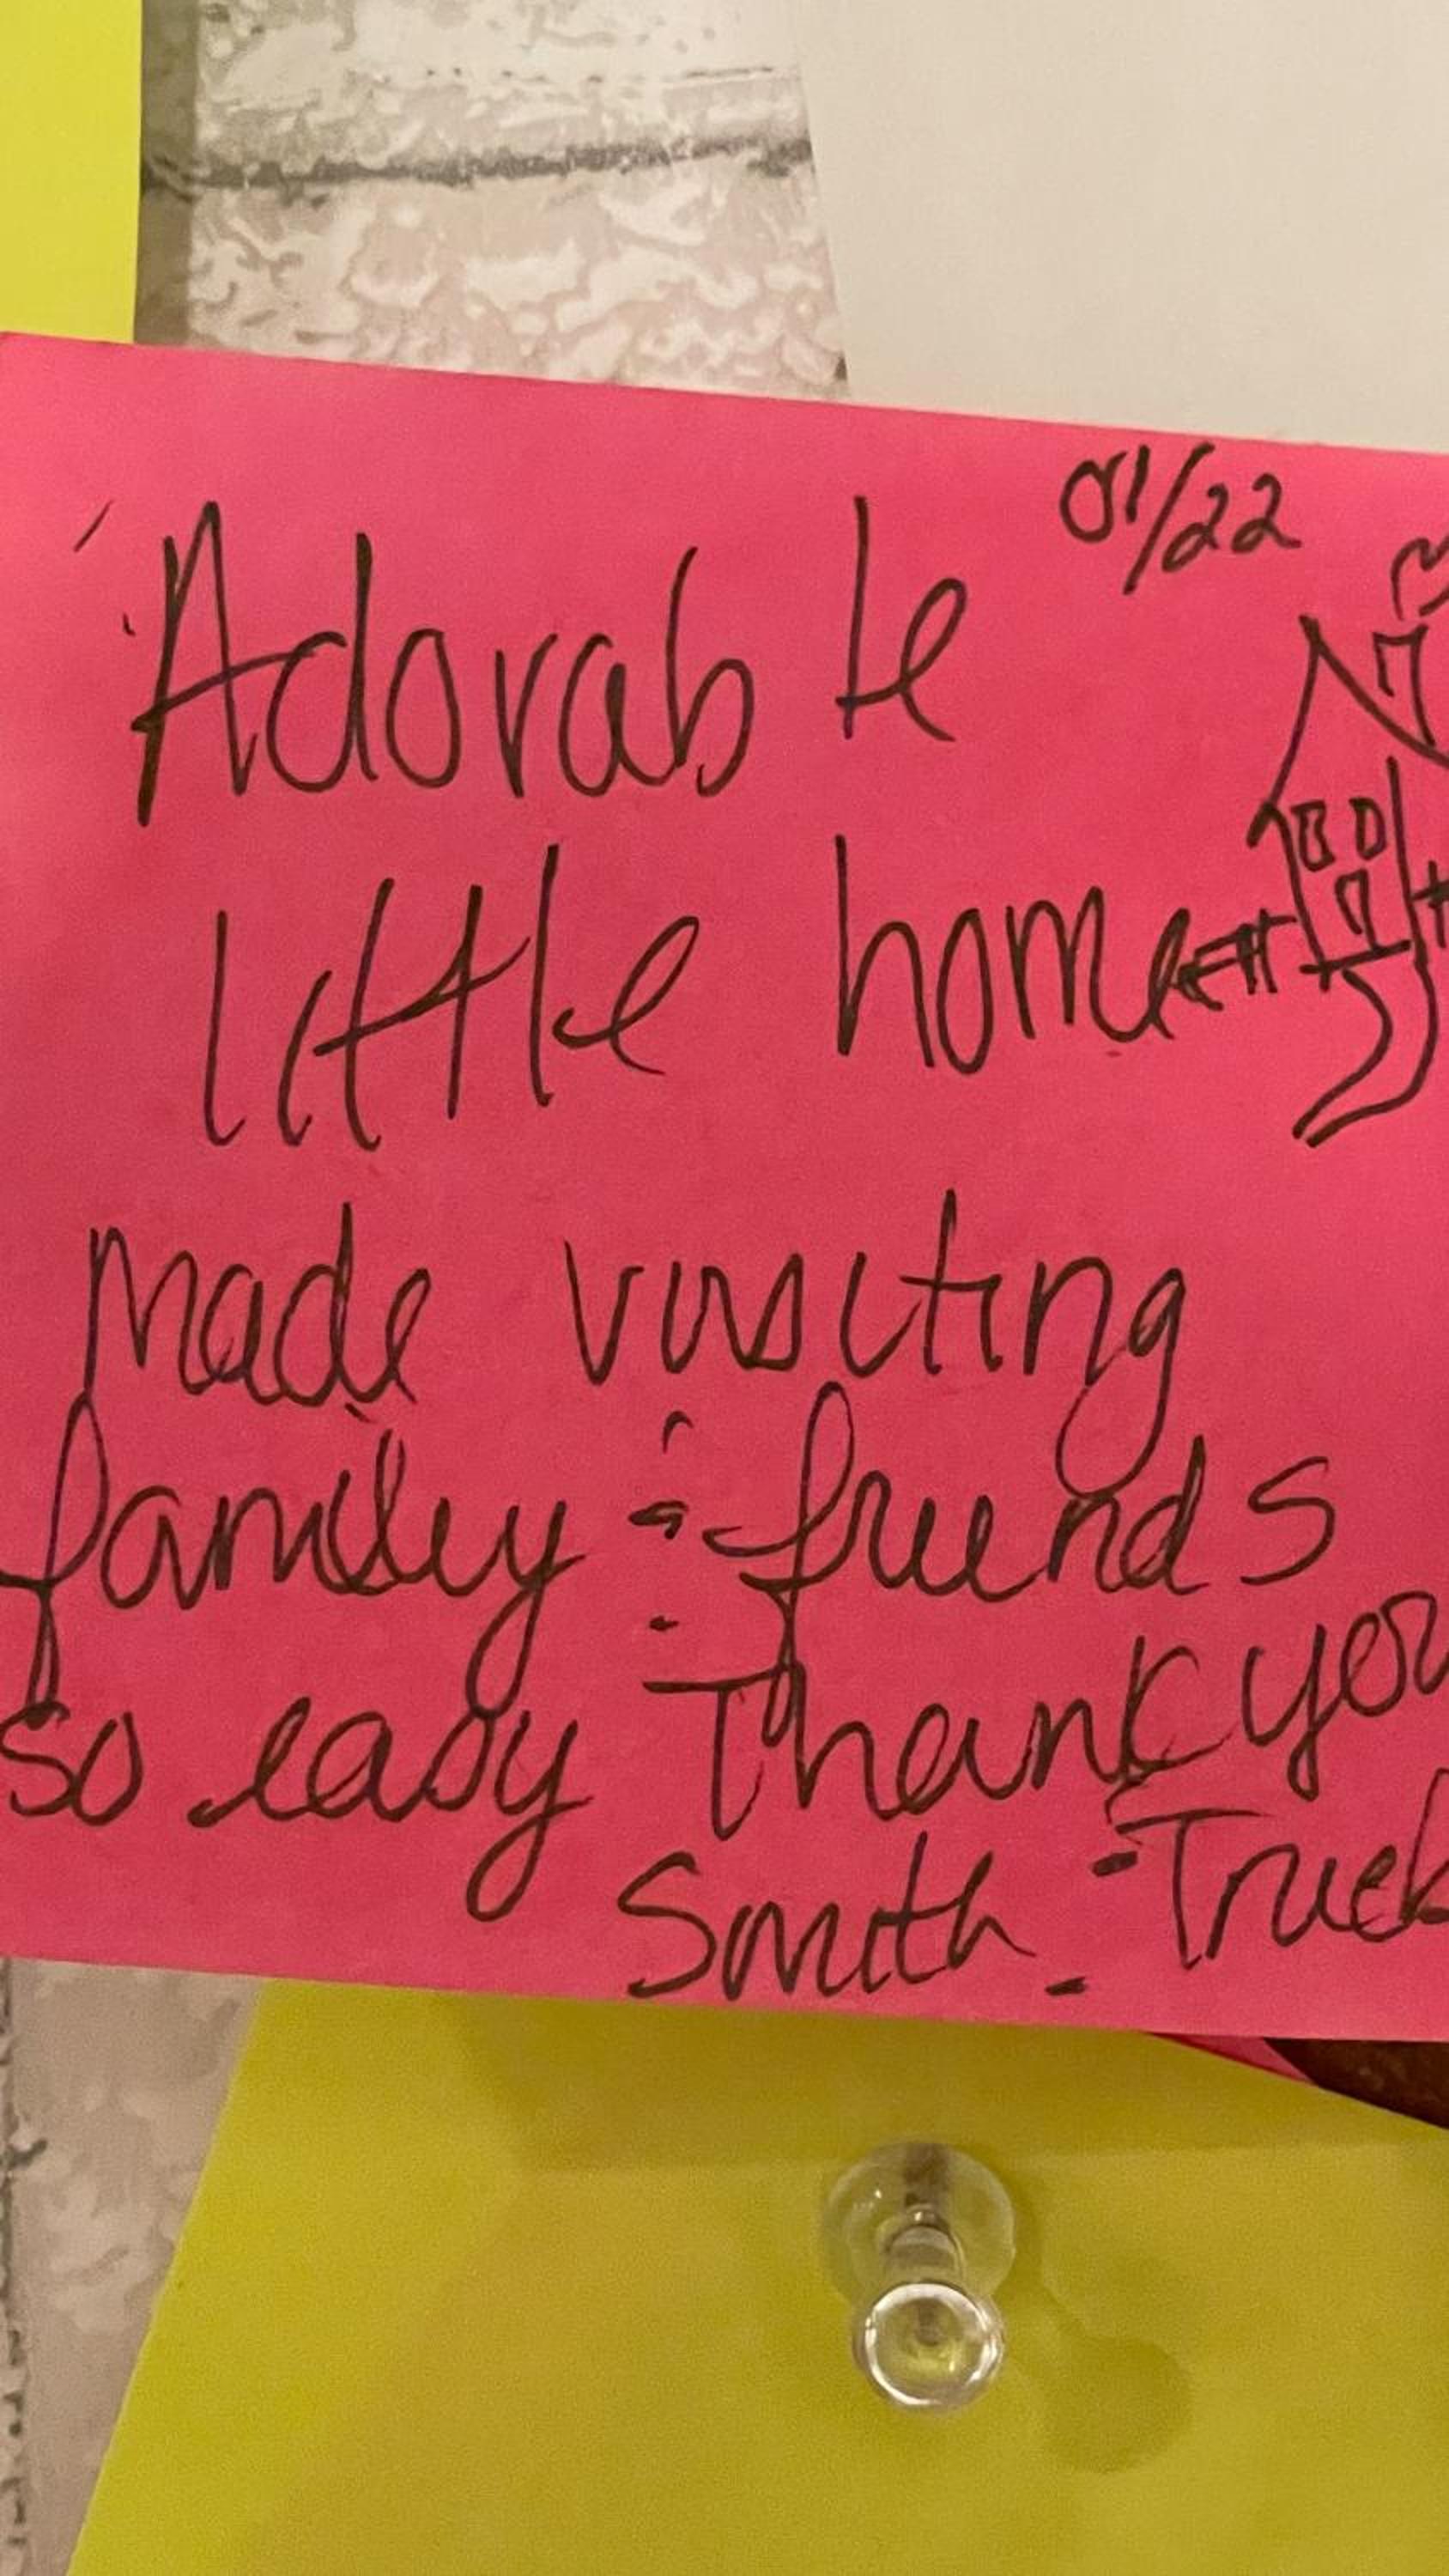 01/22
Adorable
little home
made visiting
family & friends
so easy Thank you
Smith - Trueb